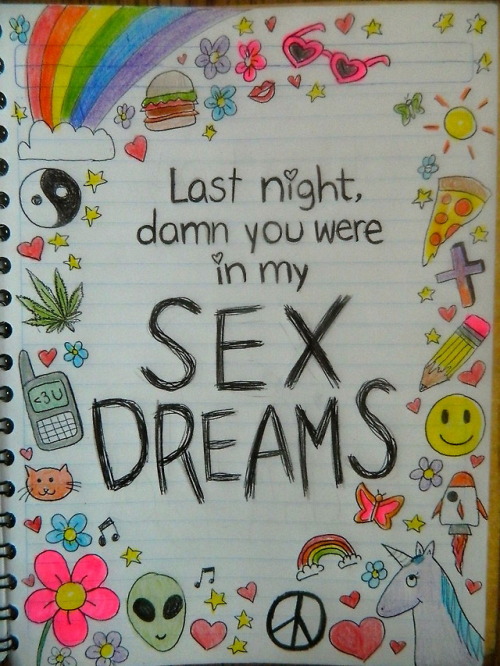 Last night,
damn you were
in my
SEX
DREAMS
<3U